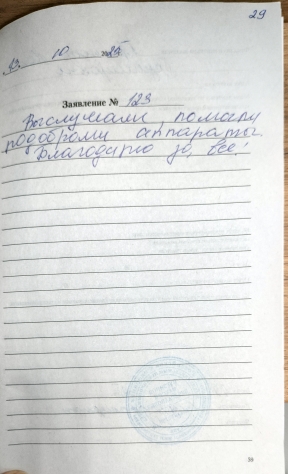 29
13 10 2023
Заявление № 123
Выслушали, помогли
подобрали аппараты.
Благодарю за все!
59